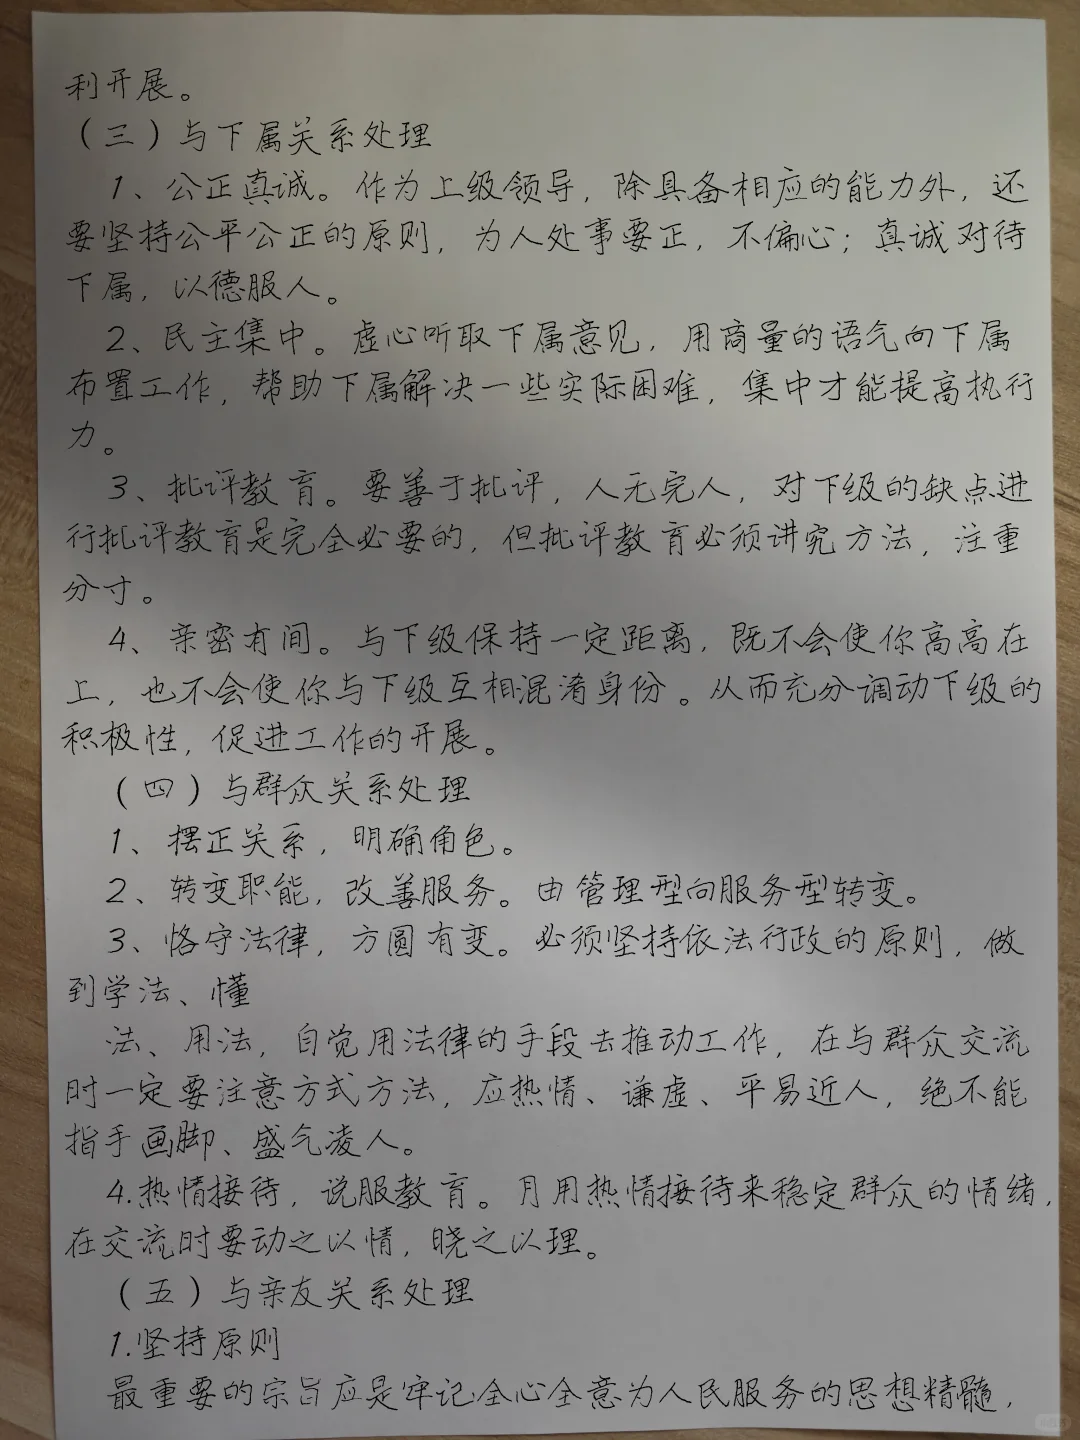 利开展。
（三）与下属关系处理
1、公正真诚。作为上级领导，除具备相应的能力外，还
要坚持公平公正的原则，为人处事要正，不偏心；真诚对待
下属，以德服人。
2、民主集中。虚心听取下属意见，用商量的语气向下属
布置工作，帮助下属解决一些实际困难，集中才能提高执行
力。
3、批评教育。要善于批评，人无完人，对下级的缺点进
行批评教育是完全必要的，但批评教育必须讲究方法，注重
分寸。
4、亲密有间。与下级保持一定距离，既不会使你高高在
上，也不会使你与下级互相混淆身份。从而充分调动下级的
积极性，促进工作的开展。
（四）与群众关系处理
1、摆正关系，明确角色。
2、转变职能，改善服务。由管理型向服务型转变。
3、恪守法律，方圆有变。必须坚持依法行政的原则，做
到学法、懂
法、用法，自觉用法律的手段去推动工作，在与群众交流
时一定要注意方式方法，应热情、谦虚、平易近人，绝不能
指手画脚、盛气凌人。
4.热情接待，说服教育。月用热情接待来稳定群众的情绪，
在交流时要动之以情，晓之以理。
（五）与亲友关系处理
1.坚持原则
最重要的宗旨应是牢记全心全意为人民服务的思想精髓，